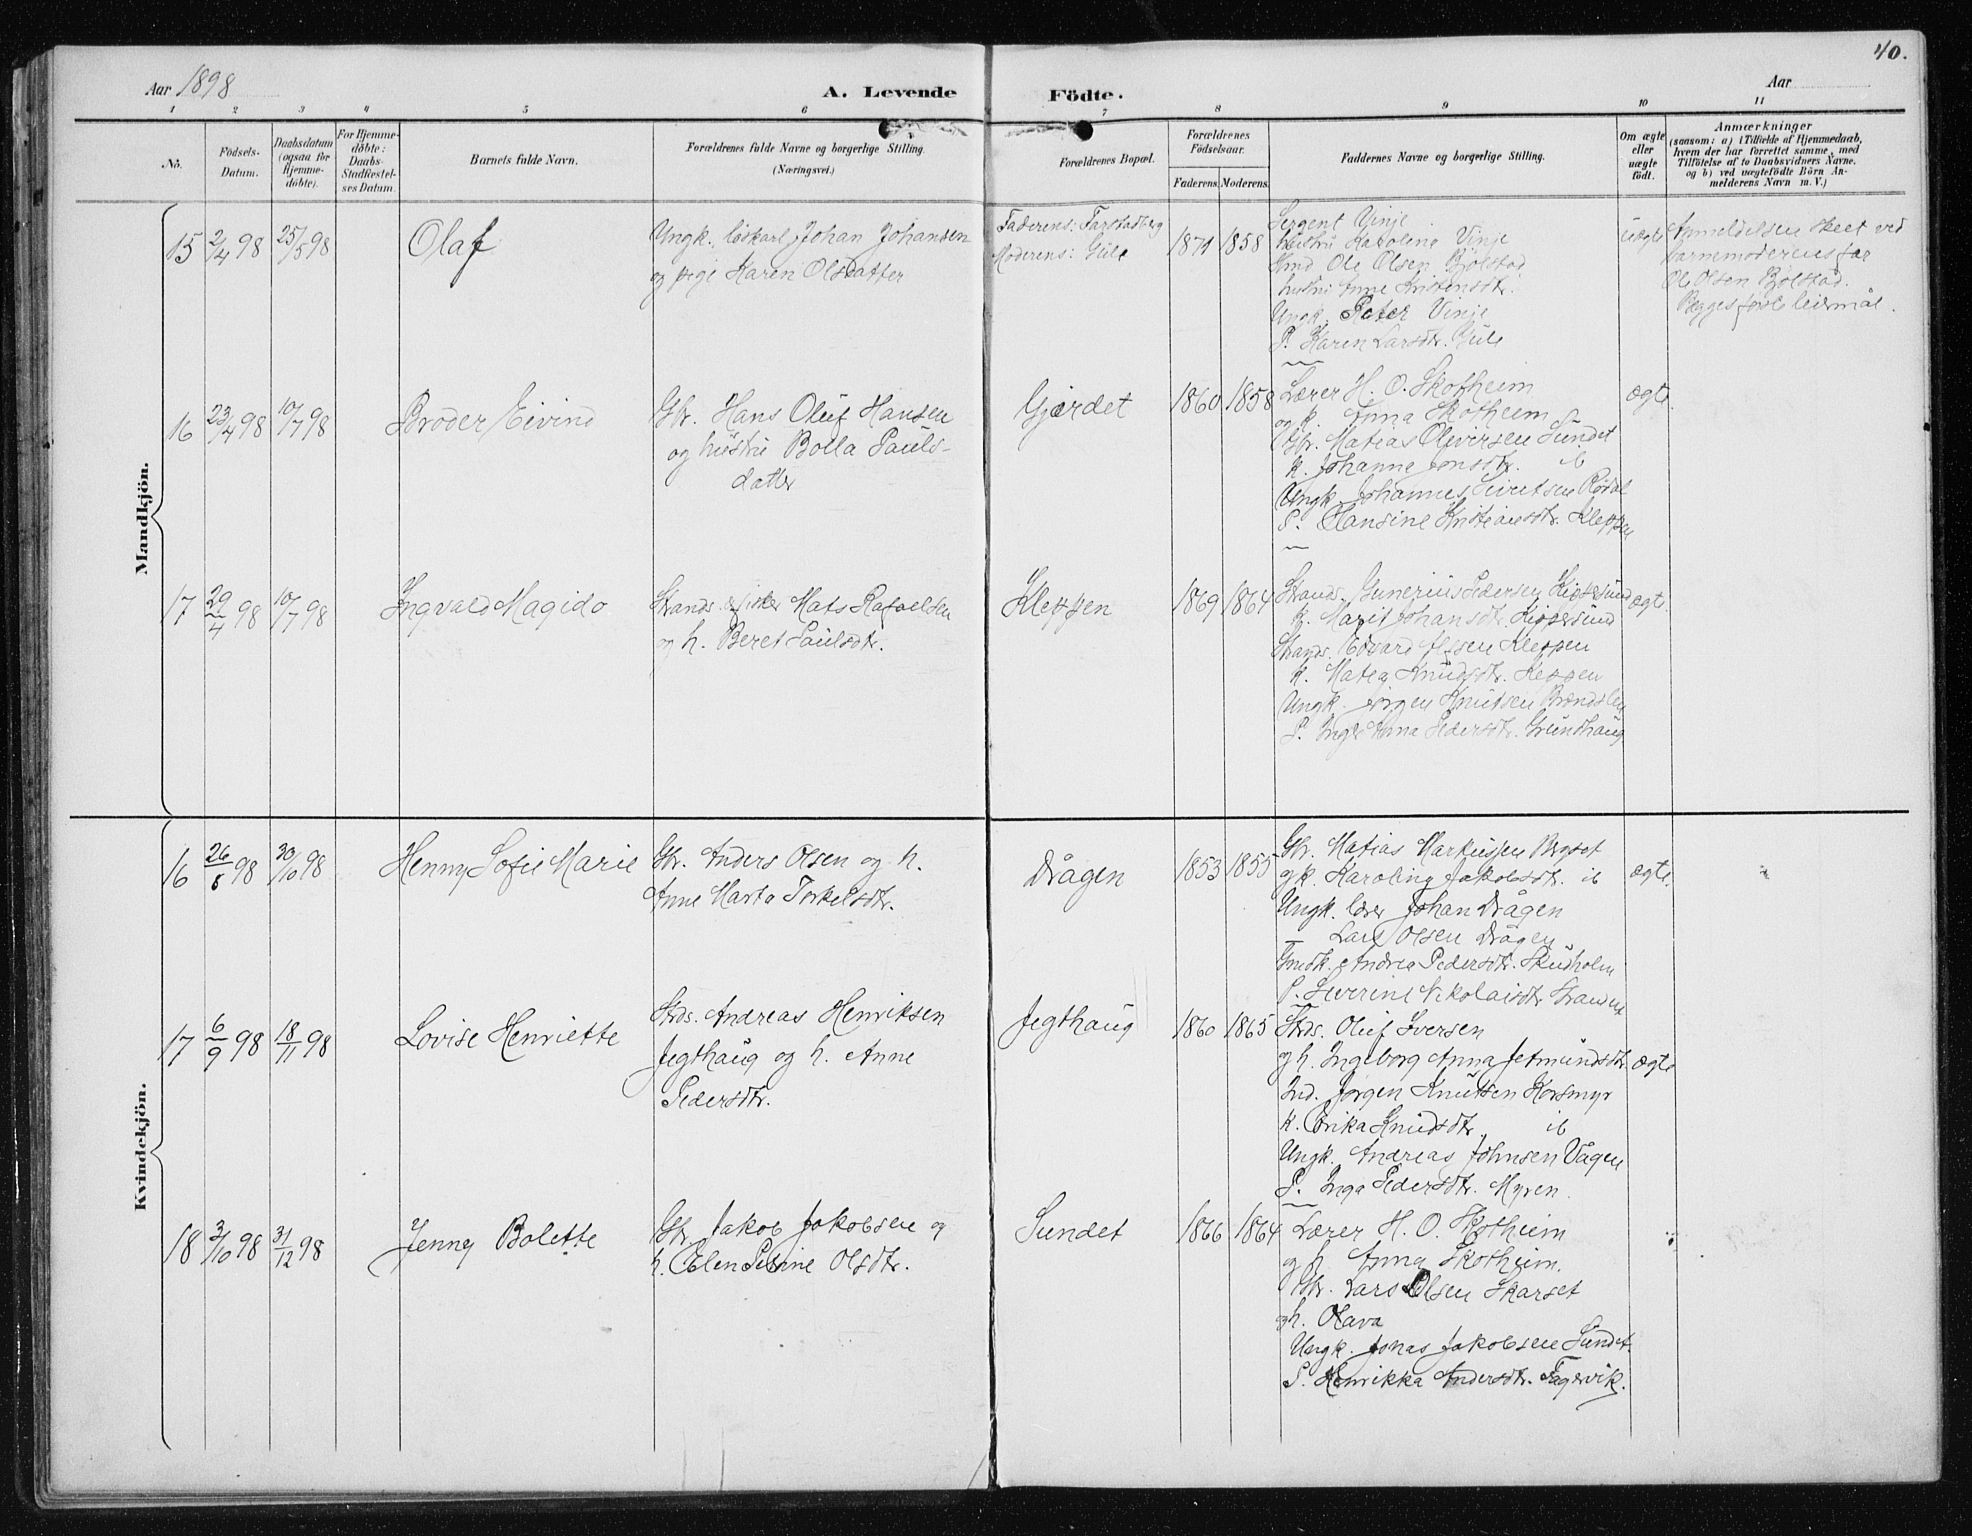 40.
Aar 1898
A. Levende Födte.
Aar
1 2 3 4 5 6 7 8 9 10 11
No.
Födsels-Datum.
Daabsdatum (ogsaa for Hjemme-döbte).
For Hjemme-döbte: Daabs-Stadfæstel-ses Datum.
Barnets fulde Navn.
Forældrenes fulde Navne og borgerlige Stilling (Næringsvei.)
Forældrenes Bopæl.
Forældrenes Födselsaar.
Faderens. Moderens.
Faddernes Navne og borgerlige Stilling.
Om ægte eller uægte født.
Anmærkninger
(saasom: a) i Tilfælde af Hjemmedaab, hvem der har forrettet samme, med Tilföielse af to Daabsvidners Navne. og b) ved uægtefödte Börn An-melderens Navn m. V.)
Mandkjön.
15 2/4 98 25/5 98 Olaf
Ungk. løskarl Johan Johansen
og pige Karen Olsdatter
Faderens: Farstadberg
Moderens: Hüle
1871 1858
Sergent Vinje
hustru Karoline Vinje
Ole Olsen Bolstad
hustru Anne Kristensdtr.
Ungk. Peter Vinje
P. Karen Larsdtr. Hüle
uægte
Anmeldelsen skeet ved
barnemoderens far
Ole Olsen Bolstad.
Begges første leiermål.
16 23/4 98 10/7 98 Broder Eivind
Gbr. Hans Oluf Hansen
og hustru Bolla Pauls-
datter
Gjærdet
1860 1858
Lærer H. O. Skotheim
og k. Anna Skotheim
Gbr. Matias Oliversen Sundet
k. Johanne Jonsdtr. ib
Ungk. Johannes Sivertsen Rødal
P. Hansine Kristiansdtr. Kleppen
ægte.
17 29/4 98 10/7 98 Ingvald Magido
Strands. & fisker Mats Rafaelsen
og h. Beret Paulsdtr.
Kleppen
1869 1864
Strands. Gunerius Pedersen Kippersund
k. Marit Johansdtr. Kippersund
Strands. Edvard Olsen Kleppen
k. Matea Knudsdtr. Kleppen
Ungk. Jørgen Knutsen
P. Inger Anna Pedersdtr. Grundhaug
ægte.
Kvindekjön.
16 26/8 98 30/10 98 Henny Sofie Marie
Gbr. Anders Olsen og h.
Anne Marta Torkelsdtr.
Drågen
1853 1855
Gbr. Matias Markussen Bygset
og k. Karoline Jakobsdtr. ib
Ungk. lærer Johan Drågen
— Lars Olsen Drågen
Andrea Pedersdtr. Skudholm
P. Severine Nikolaisdtr.
ægte.
17 6/9 98 18/11 98 Lovise Henriette
Strds. Andreas Henriksen
Jegthaug og h. Anne
Pedersdtr.
Jegthaug
1860 1865
Strds. Oluf Iversen
og h. Ingeborg Anna Jetmundsdtr.
Ind. Jørgen Knutsen Korsmyr
k. Erika Knudsdtr. ib
Ungk. Andreas Johnsen Vågen
P. Inga Pedersdtr. Myren.
ægte
18 3/10 98 31/12 98 Jenny Bolette
Gbr. Jakob Jakobsen og
h. Elen Petrine Olsdtr.
Sundet
1866 1864
Lærer H. O. Skotheim
og h. Anna Skotheim.
Gbr. Lars Olsen Skarset
og h. Olava
Ungk. Jonas Jakobsen Sundet.
P. Henrikka Andersdtr. Fagervik.